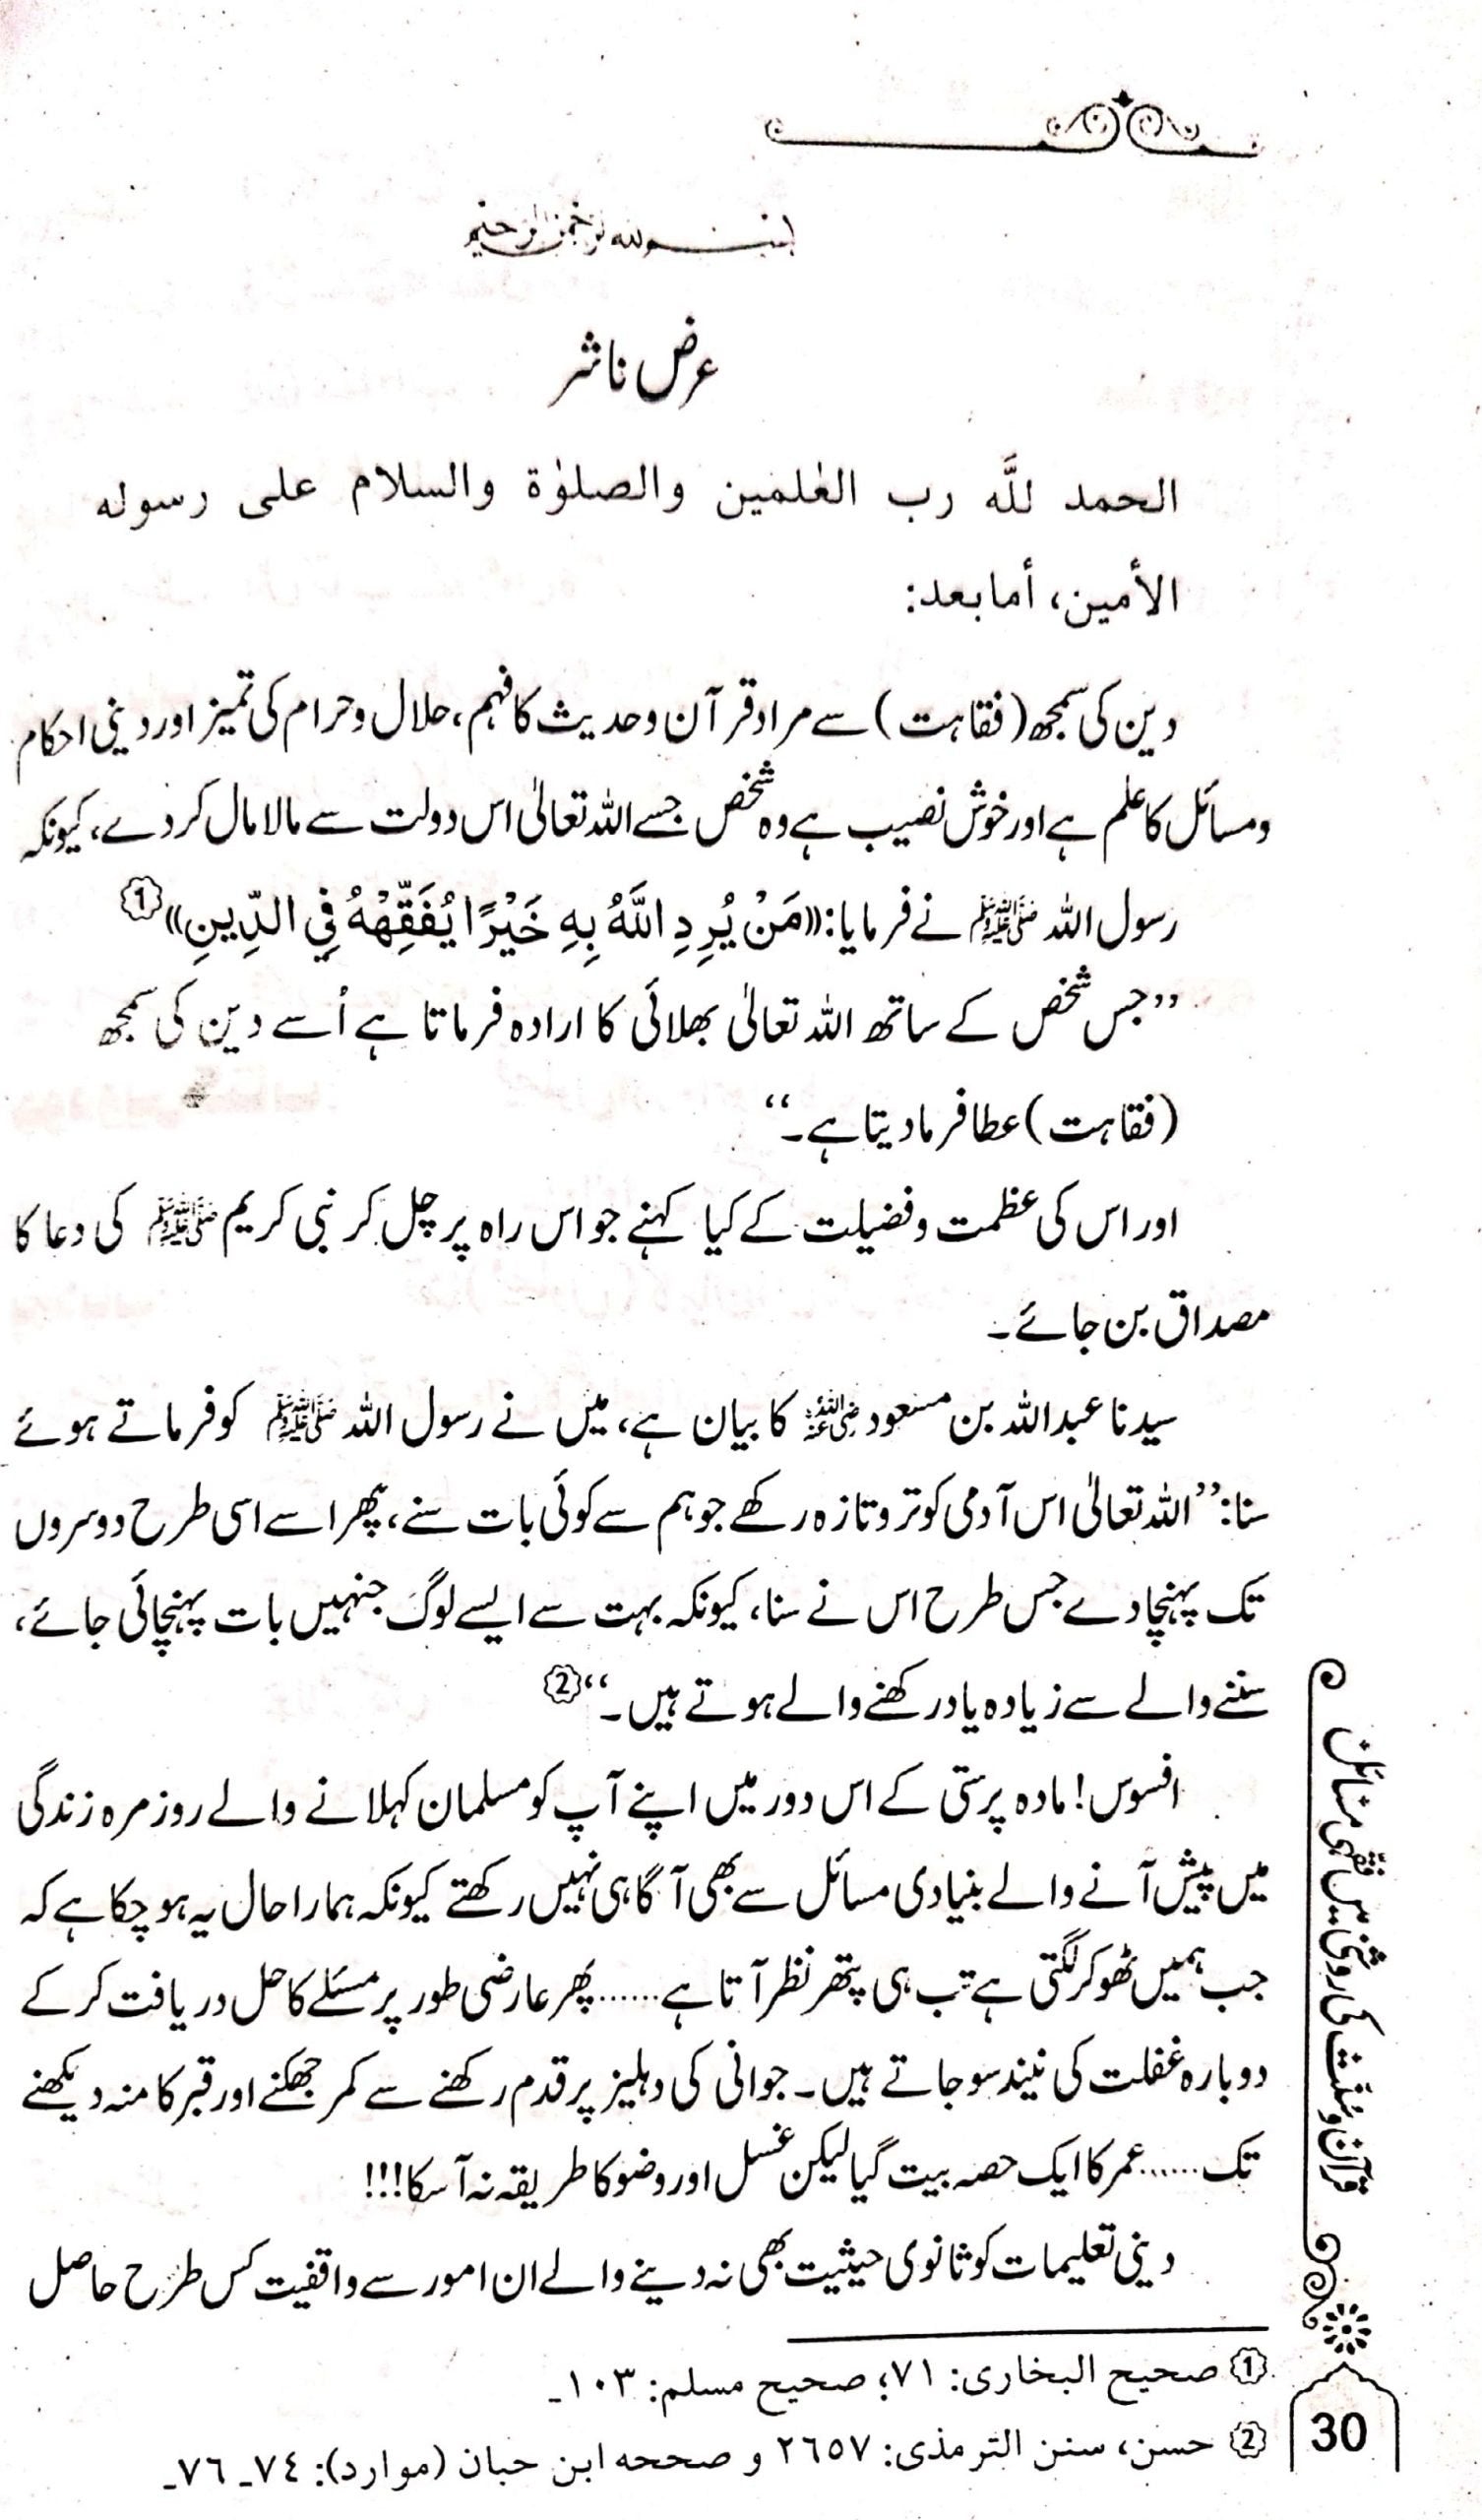 بسم الله الرحمن الرحيم
عرض ناشر
الحمد للَّه رب العٰلمين والصلوٰة والسلام على رسوله
الأمين، أما بعد:
دین کی سمجھ (فقاہت) سے مراد قرآن وحدیث کا فہم، حلال وحرام کی تمیز اور دینی احکام
ومسائل کا علم ہے اور خوش نصیب ہے وہ شخص جسے اللہ تعالیٰ اس دولت سے مالا مال کر دے، کیونکہ
رسول اللہ ﷺ نے فرمایا: ((مَنْ يُرِدِ اللَّهُ بِهِ خَيْرًا يُفَقِّهْهُ فِي الدِّينِ)) ①
’’جس شخص کے ساتھ اللہ تعالیٰ بھلائی کا ارادہ فرماتا ہے اُسے دین کی سمجھ
(فقاہت) عطا فرما دیتا ہے۔‘‘
اور اس کی عظمت وفضیلت کے کیا کہنے جو اس راہ پر چل کر نبی کریم ﷺ کی دعا کا
مصداق بن جائے۔
سیدنا عبداللہ بن مسعود رضی اللہ عنہ کا بیان ہے، میں نے رسول اللہ ﷺ کو فرماتے ہوئے
سنا: ’’اللہ تعالیٰ اس آدمی کو تر وتازہ رکھے جو ہم سے کوئی بات سنے، پھر اسے اسی طرح دوسروں
تک پہنچا دے جس طرح اس نے سنا، کیونکہ بہت سے ایسے لوگ جنہیں بات پہنچائی جائے،
سننے والے سے زیادہ یاد رکھنے والے ہوتے ہیں۔‘‘ ②
افسوس! مادہ پرستی کے اس دور میں اپنے آپ کو مسلمان کہلانے والے روز مرہ زندگی
میں پیش آنے والے بنیادی مسائل سے بھی آگاہی نہیں رکھتے کیونکہ ہمارا حال یہ ہو چکا ہے کہ
جب ہمیں ٹھوکر لگتی ہے تب ہی پتھر نظر آتا ہے ...... پھر عارضی طور پر مسئلے کا حل دریافت کر کے
دوبارہ غفلت کی نیند سو جاتے ہیں۔ جوانی کی دہلیز پر قدم رکھنے سے کمر جھکنے اور قبر کا منہ دیکھنے
تک ...... عمر کا ایک حصہ بیت گیا لیکن غسل اور وضو کا طریقہ نہ آ سکا!!!
دینی تعلیمات کو ثانوی حیثیت بھی نہ دینے والے ان امور سے واقفیت کس طرح حاصل
① صحيح البخاری: ٧١؛ صحیح مسلم: ١٠٣۔
② حسن، سنن الترمذی: ٢٦٥٧ و صححه ابن حبان (موارد): ٧٤۔ ٧٦۔
قرآن وسنت کی روشنی میں فقہی مسائل
30